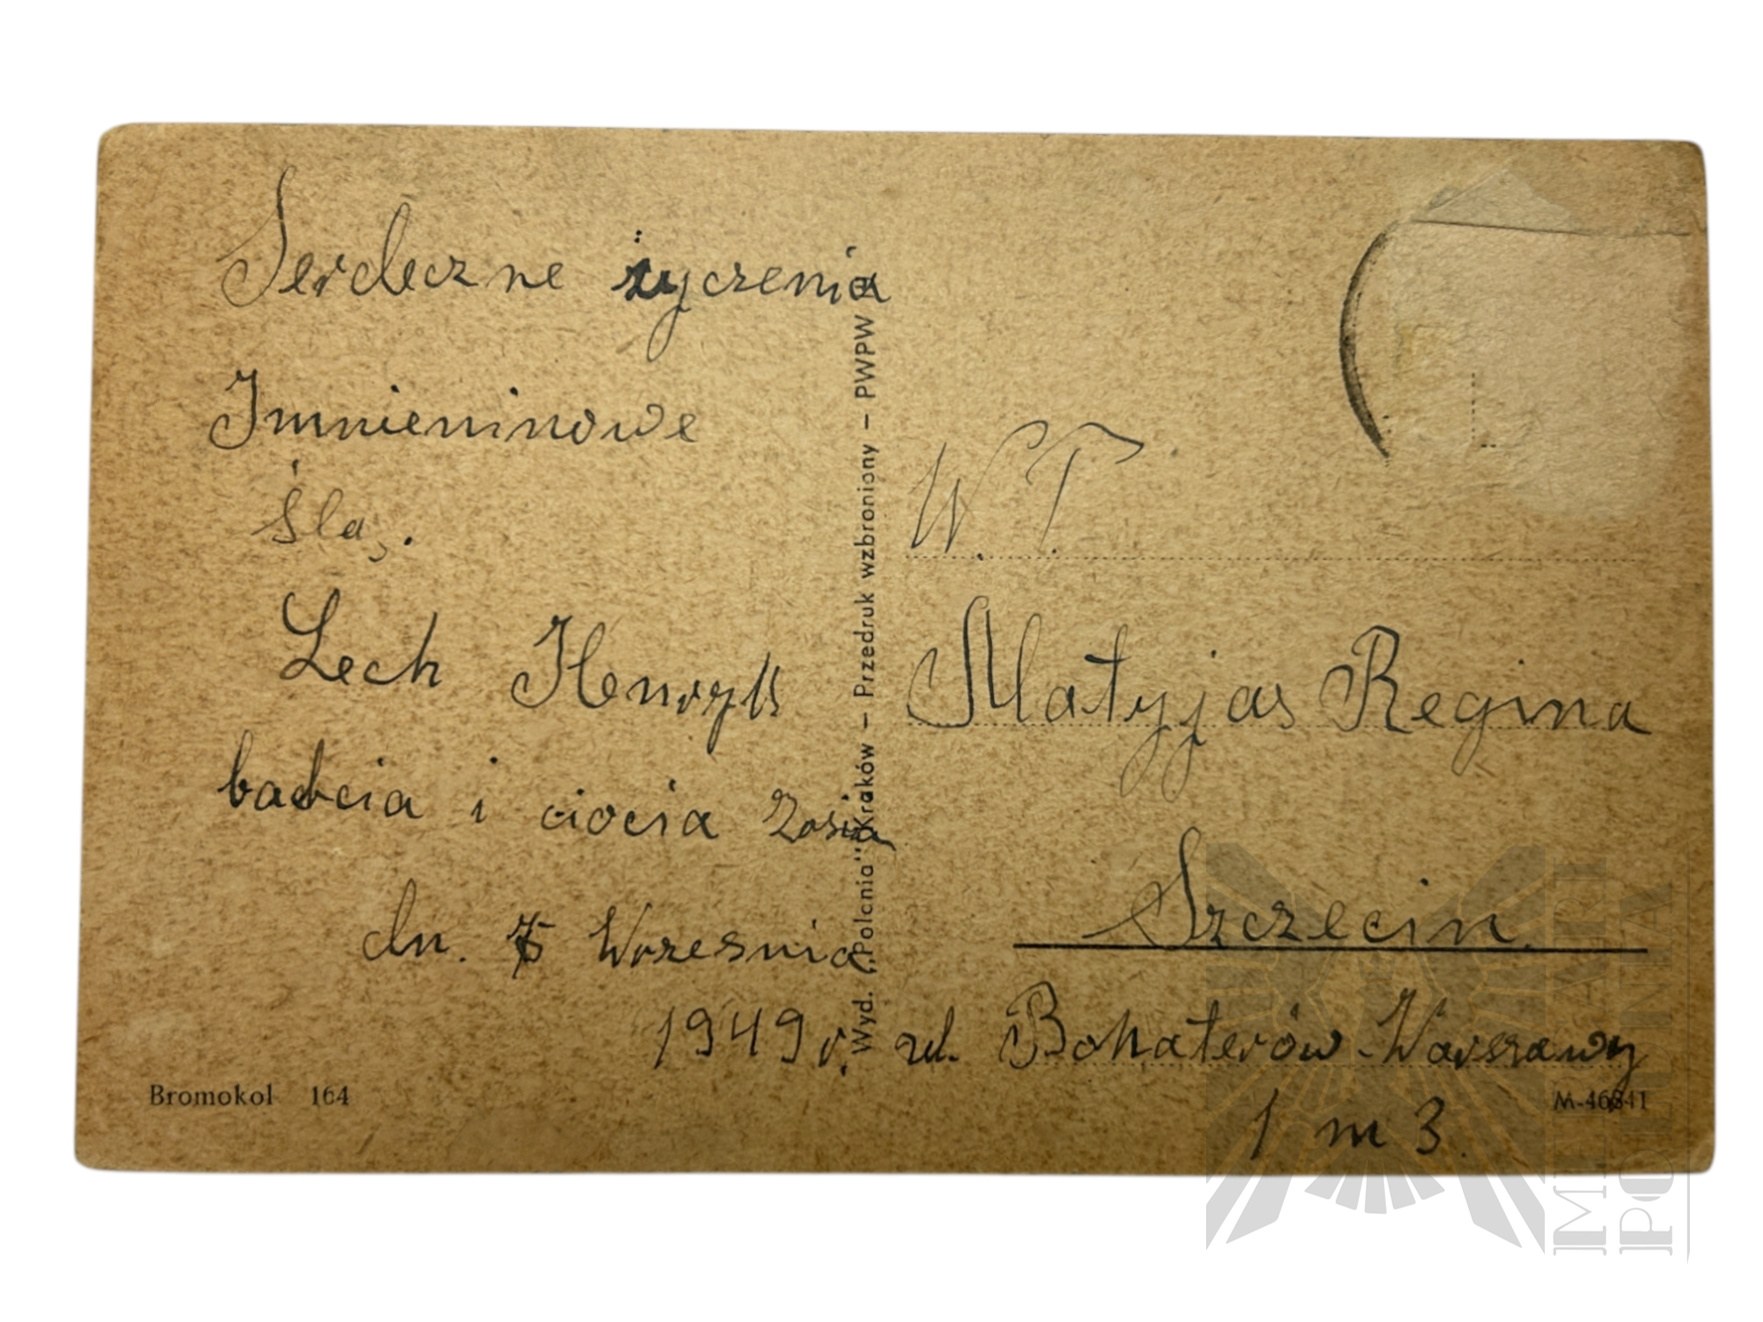 Serdeczne życzenia
Imnieninowe
ślą.
Lech Henryk
babcia i ciocia Zosia
dn. 5 Wrzesnia
1949 r.
Wyd. „Polonia" Kraków – Przedruk wzbroniony – PWPW
W.P.
Matyjas Regina
Szczecin.
ul. Bohaterów-Warszawy
1 m 3.
Bromokol 164
M-46841